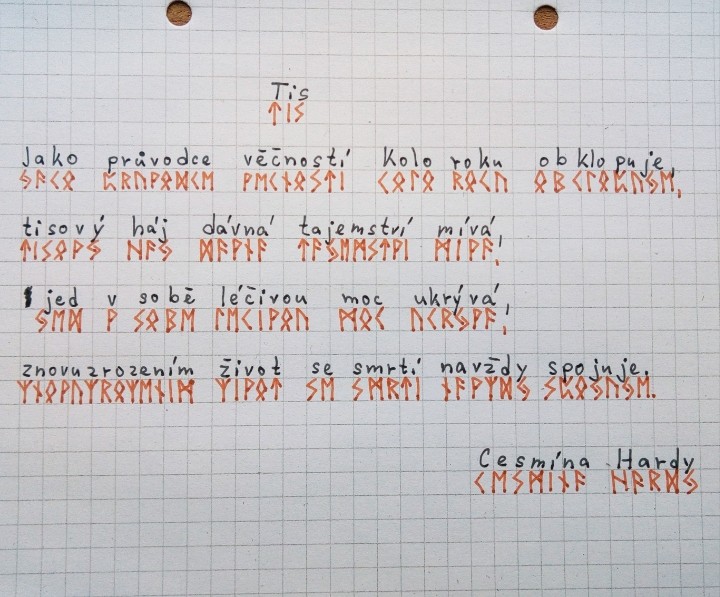 Tis
ᛏᛁᛊ
Jako průvodce věčností kolo roku obklopuje,
ᛃᚨᚲᛟ ᛈᚱᚢᚹᛟᛞᚲᛖ ᚹᛖᚲᚾᛟᛊᛏᛁ ᚲᛟᛚᛟ ᚱᛟᚲᚢ ᛟᛒᚲᛚᛟᛈᚢᛃᛖ,
tisový háj dávná tajemství mívá,
ᛏᛁᛊᛟᚹᛃ ᚺᚨᛃ ᛞᚨᚹᚾᚨ ᛏᚨᛃᛖᛗᛊᛏᚹᛁ ᛗᛁᚹᚨ,
jed v sobě léčivou moc ukrývá,
ᛃᛖᛞ ᚹ ᛊᛟᛒᛖ ᛚᛖᚲᛁᚹᛟᚢ ᛗᛟᚲ ᚢᚲᚱᛃᚹᚨ,
znovuzrozením život se smrtí navždy spojuje.
ᛉᚾᛟᚹᚢᛉᚱᛟᛉᛖᚾᛁᛗ ᛉᛁᚹᛟᛏ ᛊᛖ ᛊᛗᚱᛏᛁ ᚾᚨᚹᛉᛞᛃ ᛊᛈᛟᛃᚢᛃᛖ.
Cesmína Hardy
ᚲᛖᛊᛗᛁᚾᚨ ᚺᚨᚱᛞᛃ